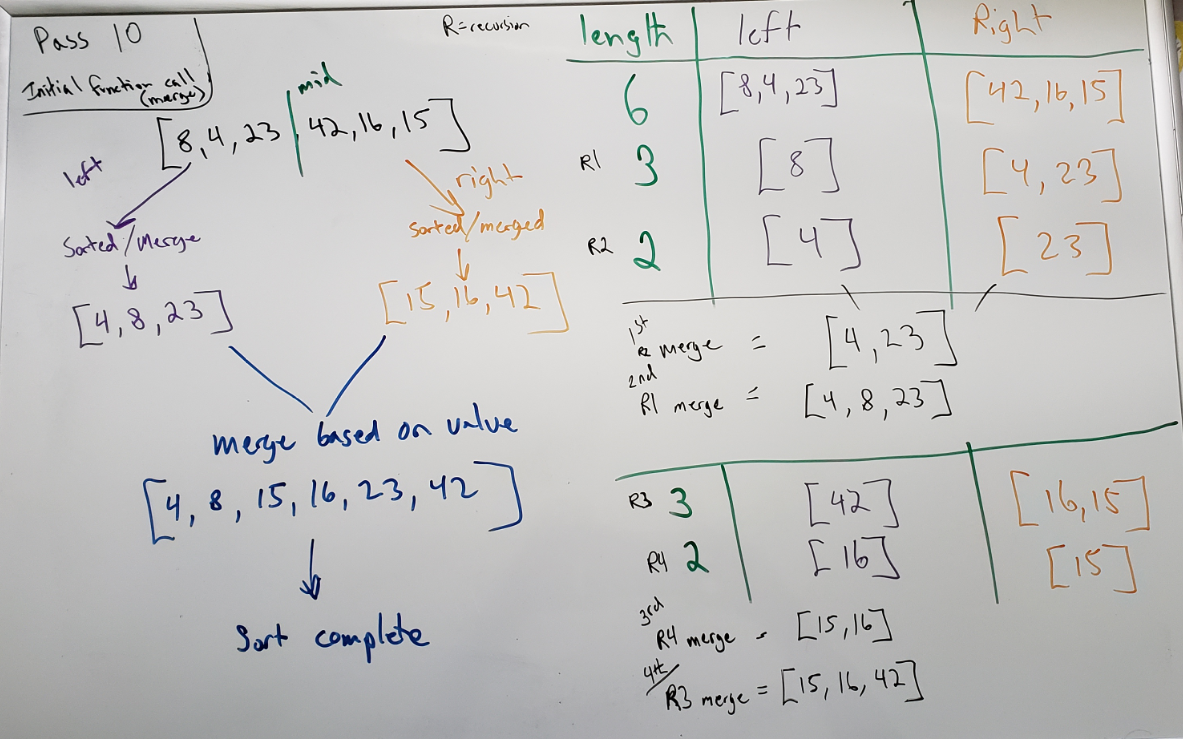 Pass 10
Initial function call
(merge)
mid
[8,4,23 42,16,15]
left
right
Sorted/Merge
Sorted/merged
[4,8,23]
[15,16,42]
merge based on value
[4, 8, 15, 16, 23, 42]
Sort complete
R=recursion
length left Right
6 [8,4,23] [42,16,15]
R1 3 [8] [4,23]
R2 2 [4] [23]
1st
R2 merge = [4,23]
2nd
R1 merge = [4,8,23]
R3 3 [42] [16,15]
R4 2 [16] [15]
3rd
R4 merge = [15,16]
4th
R3 merge = [15,16,42]